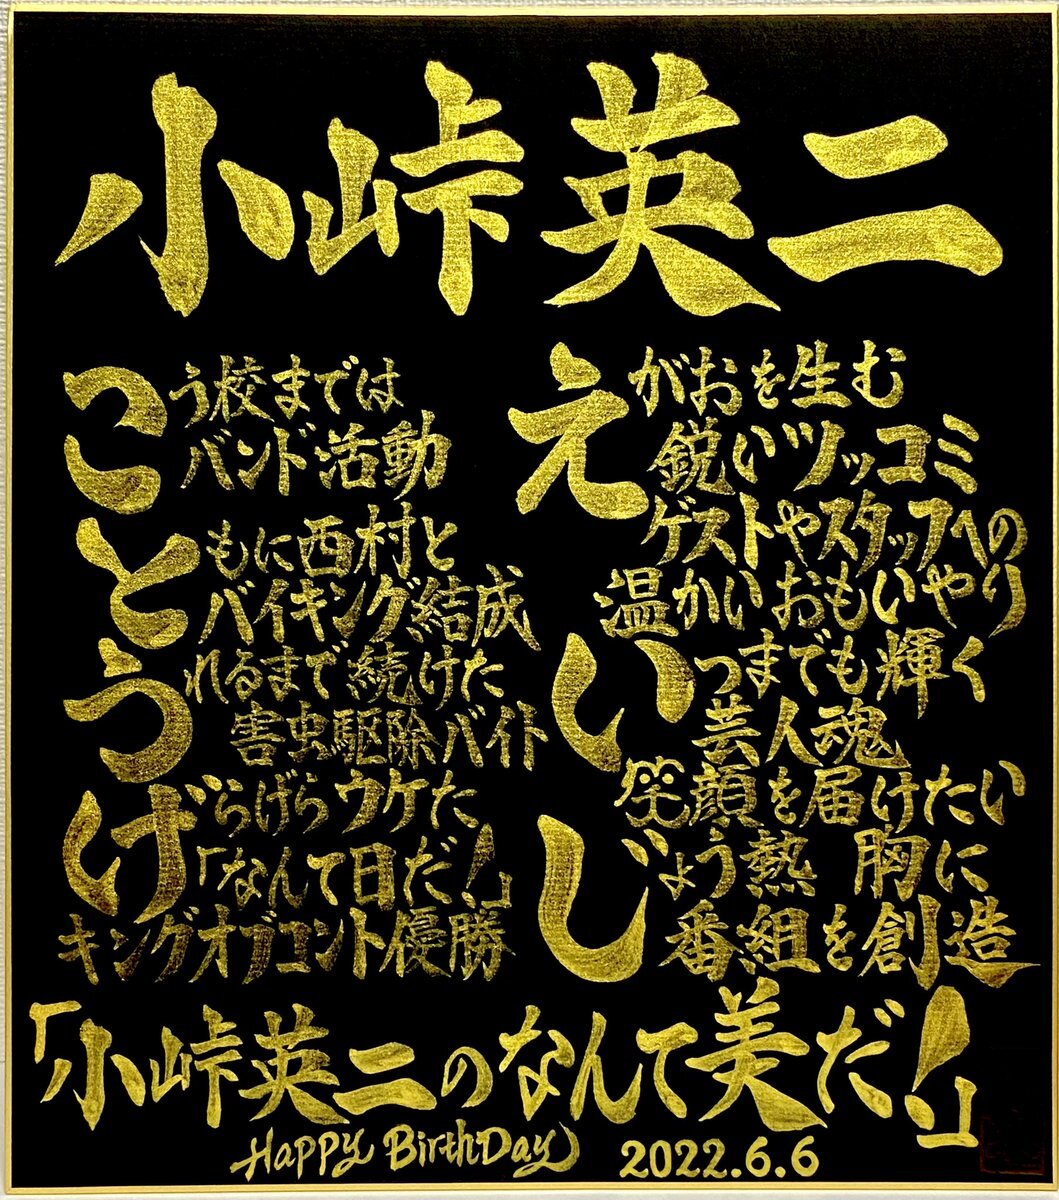 小峠英二
こう校までは
バンド活動
ともに西村と
バイキング結成
うれるまで続けた
害虫駆除バイト
げらげらウケた
「なんて日だ!」
キングオブコント優勝
えがおを生む
鋭いツッコミ
ゲストやスタッフへの
温かいおもいやり
いつまでも輝く
芸人魂
笑顔を届けたい
じょう熱 胸に
番組を創造
「小峠英二のなんて美だ!」
Happy BirthDay 2022.6.6